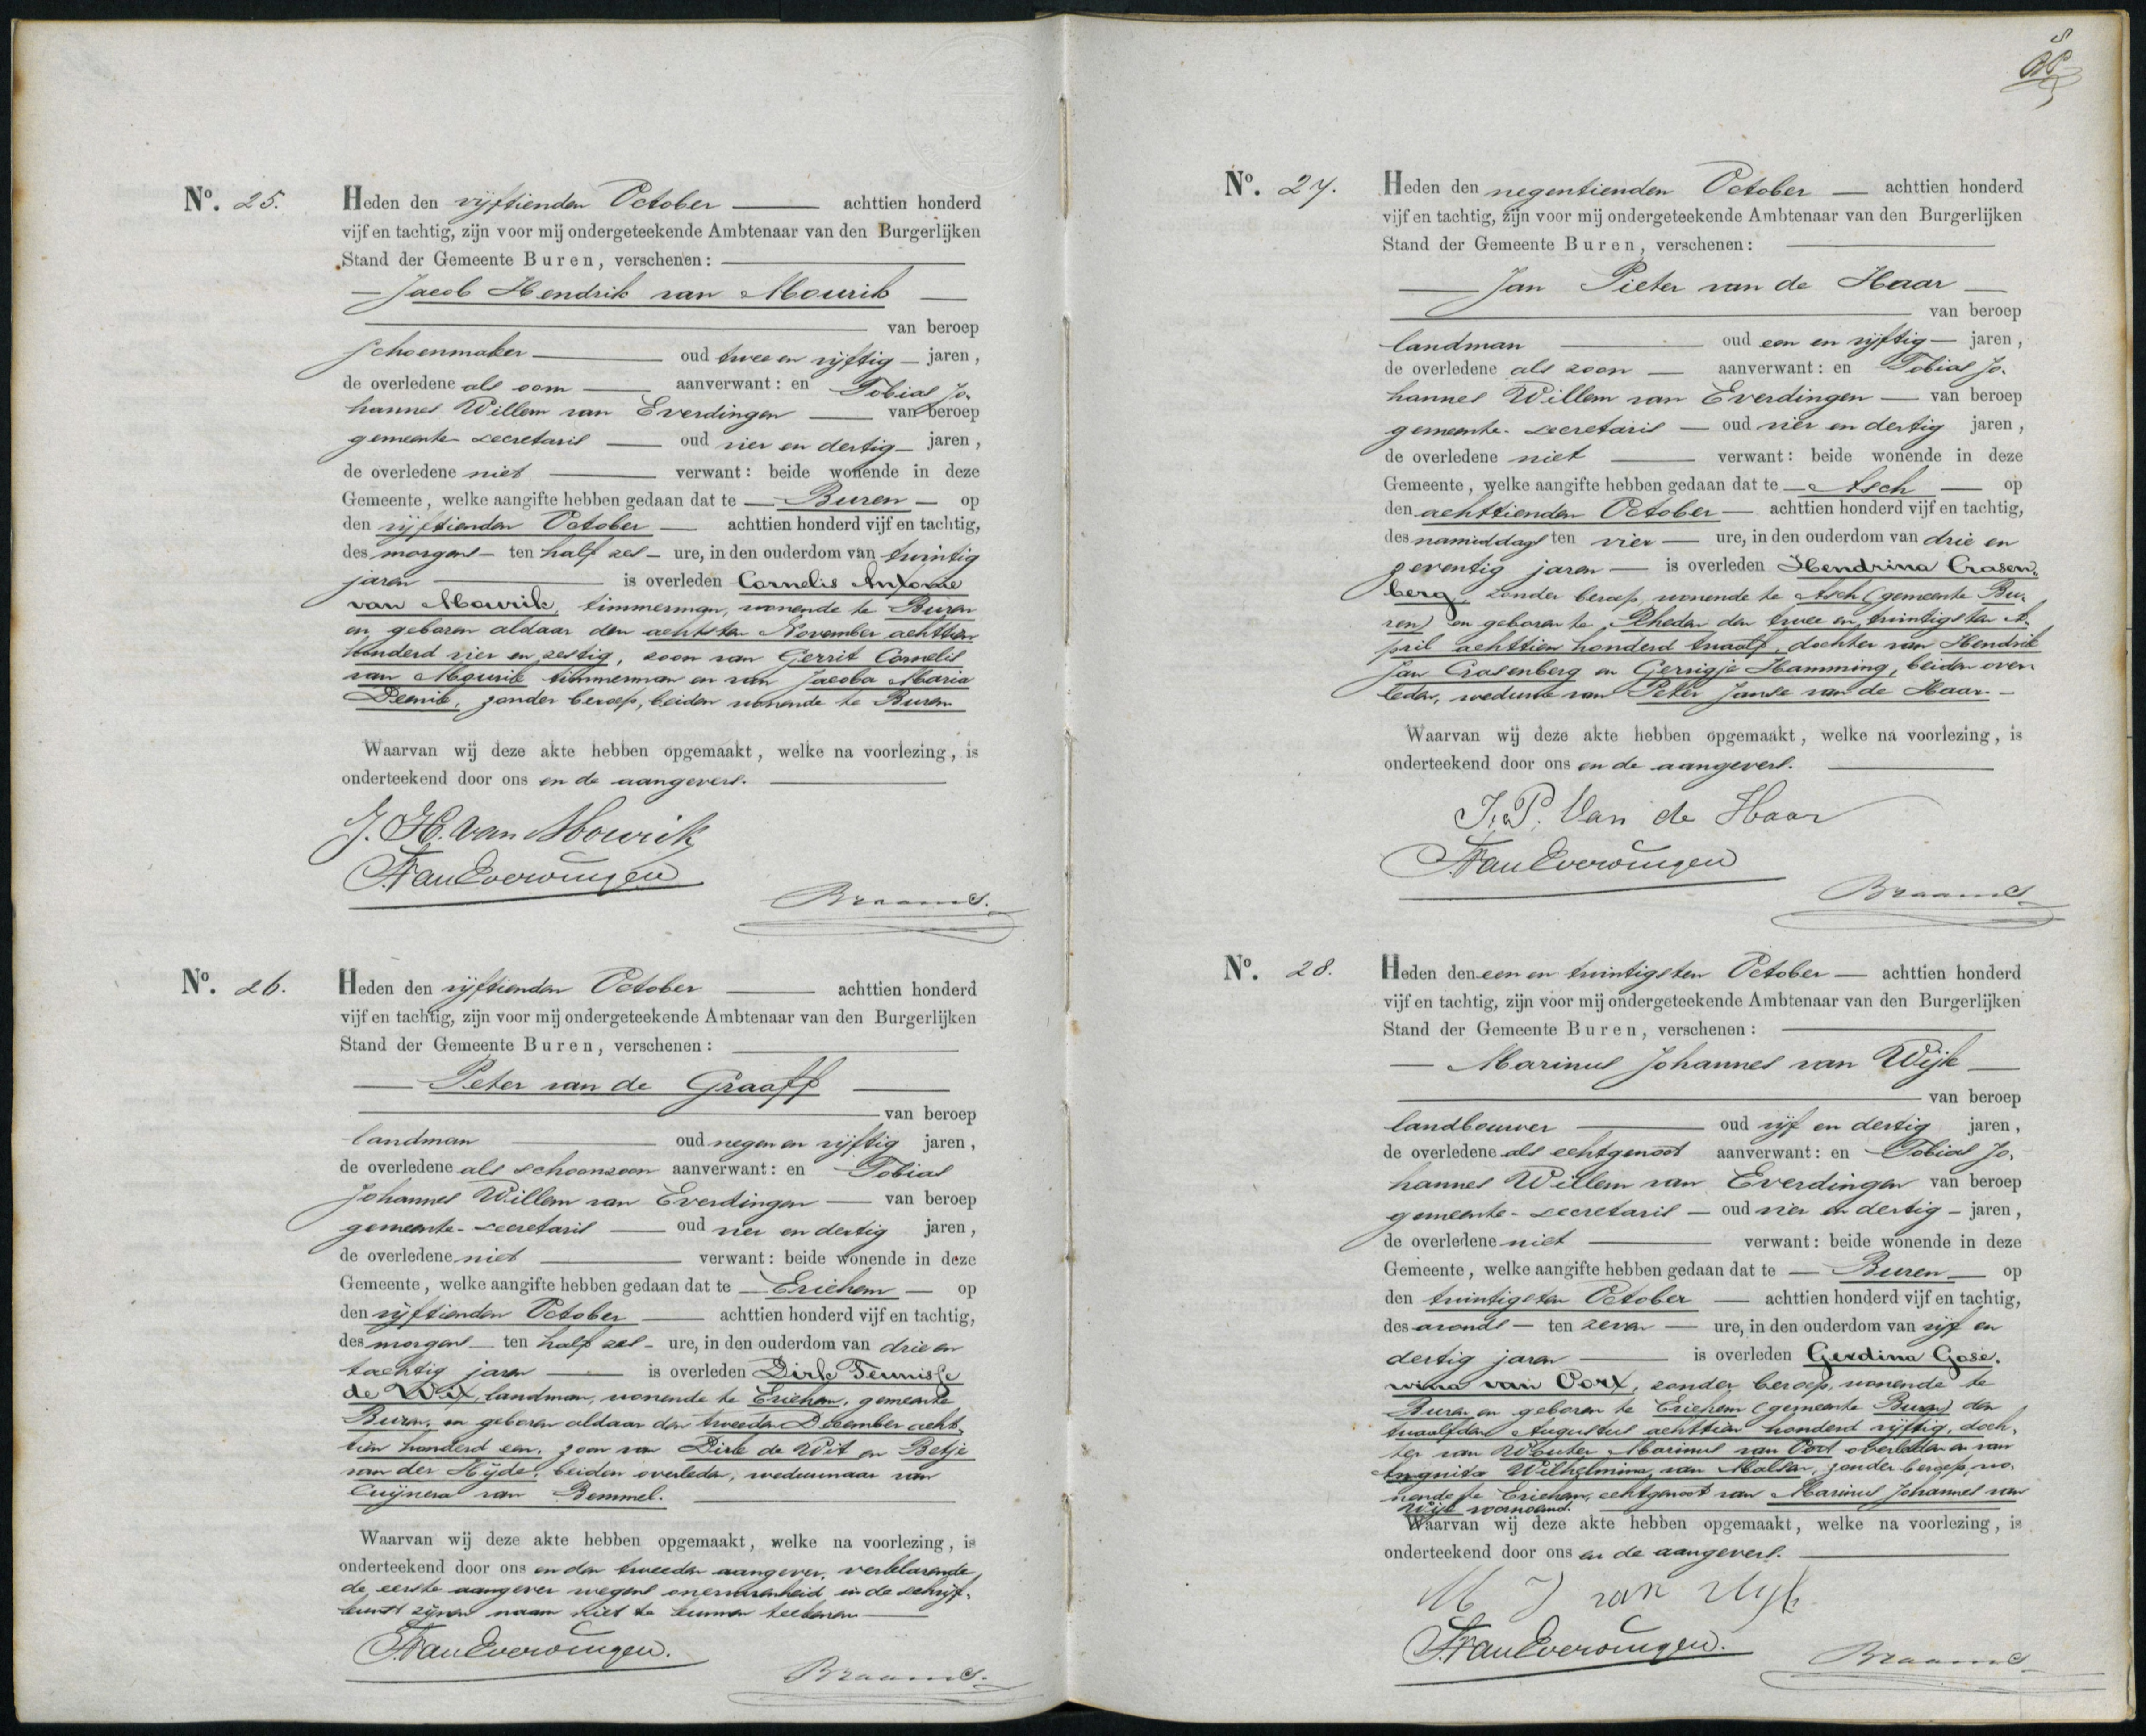 Nº. 25.
Heden den vijftienden October achttien honderd
vijf en tachtig, zijn voor mij ondergeteekende Ambtenaar van den Burgerlijken
Stand der Gemeente Buren, verschenen:
Jacob Hendrik van Mourik
van beroep
schoenmaker oud twee en vijftig jaren,
de overledene als oom aanverwant: en Tobias Jo-
hannes Willem van Everdingen van beroep
gemeente-secretaris oud vier en dertig jaren,
de overledene niet verwant: beide wonende in deze
Gemeente, welke aangifte hebben gedaan dat te Buren op
den vijftienden October achttien honderd vijf en tachtig,
des morgens ten half zes ure, in den ouderdom van twintig
jaren is overleden Cornelis Antonie
van Mourik, timmerman, wonende te Buren
en geboren aldaar den achtsten November achttien
honderd vier en zestig, zoon van Gerrit Cornelis
van Mourik timmerman en van Jacoba Maria
zonder beroep, beiden wonende te Buren
Waarvan wij deze akte hebben opgemaakt, welke na voorlezing, is
onderteekend door ons en de aangevers.
J. H. van Mourik
TvanEverdingen
Braams.
Nº. 26.
Heden den vijftienden October achttien honderd
vijf en tachtig, zijn voor mij ondergeteekende Ambtenaar van den Burgerlijken
Stand der Gemeente Buren, verschenen:
Peter van de Graaff
van beroep
landman oud negen en vijftig jaren,
de overledene als schoonzoon aanverwant: en Tobias
Johannes Willem van Everdingen van beroep
gemeente-secretaris oud vier en dertig jaren,
de overledene niet verwant: beide wonende in deze
Gemeente, welke aangifte hebben gedaan dat te Erichem op
den vijftienden October achttien honderd vijf en tachtig,
des morgens ten half zes ure, in den ouderdom van drie en
tachtig jaren is overleden Dirk Teunisse
de Wit, landman, wonende te Erichem, gemeente
Buren, en geboren aldaar den tweeden December acht-
tien honderd een, zoon van Dirk de Wit en Betje
van der Hijde, beiden overleden, weduwnaar van
Cuijnera van Bemmel.
Waarvan wij deze akte hebben opgemaakt, welke na voorlezing, is
onderteekend door ons en den tweeden aangever, verklarende
de eerste aangever wegens onervarenheid in de schrijf-
kunst zijnen naam niet te kunnen teekenen
TvanEverdingen.
Braams.
Nº. 27.
Heden den negentienden October achttien honderd
vijf en tachtig, zijn voor mij ondergeteekende Ambtenaar van den Burgerlijken
Stand der Gemeente Buren, verschenen:
Jan Pieter van de Haar
van beroep
landman oud een en vijftig jaren,
de overledene als zoon aanverwant: en Tobias Jo-
hannes Willem van Everdingen van beroep
gemeente-secretaris oud vier en dertig jaren,
de overledene niet verwant: beide wonende in deze
Gemeente, welke aangifte hebben gedaan dat te Asch op
den achttienden October achttien honderd vijf en tachtig,
des namiddags ten vier ure, in den ouderdom van drie en
zeventig jaren is overleden Hendrina Crasen-
berg, zonder beroep, wonende te Asch (gemeente Bu-
ren) en geboren te Rheden den twee en twintigsten A-
pril achttien honderd twaalf, dochter van Hendrik
Jan Crasenberg en Gerrigje Hamming, beiden over-
leden, weduwe van Peter Janse van de Haar.
Waarvan wij deze akte hebben opgemaakt, welke na voorlezing, is
onderteekend door ons en de aangevers.
J. P. Van de Haar
TvanEverdingen
Braams
Nº. 28.
Heden den een en twintigsten October achttien honderd
vijf en tachtig, zijn voor mij ondergeteekende Ambtenaar van den Burgerlijken
Stand der Gemeente Buren, verschenen:
Marinus Johannes van Wijk
van beroep
landbouwer oud vijf en dertig jaren,
de overledene als echtgenoot aanverwant: en Tobias Jo-
hannes Willem van Everdingen van beroep
gemeente-secretaris oud vier en dertig jaren,
de overledene niet verwant: beide wonende in deze
Gemeente, welke aangifte hebben gedaan dat te Buren op
den twintigsten October achttien honderd vijf en tachtig,
des avonds ten zeven ure, in den ouderdom van vijf en
dertig jaren is overleden Gerdina Gose-
wina van Oort, zonder beroep, wonende te
Buren en geboren te Erichem (gemeente Buren) den
twaalfden Augustus achttien honderd vijftig, doch-
ter van Wouter Marinus van Oort overleden en van
Wilhelmina van Malsen, zonder beroep, wo-
nende te Erichem, echtgenoot van Marinus Johannes van
Wijk voornoemd.
Waarvan wij deze akte hebben opgemaakt, welke na voorlezing, is
onderteekend door ons en de aangevers.
M J van Wijk
TvanEverdingen.
Braams